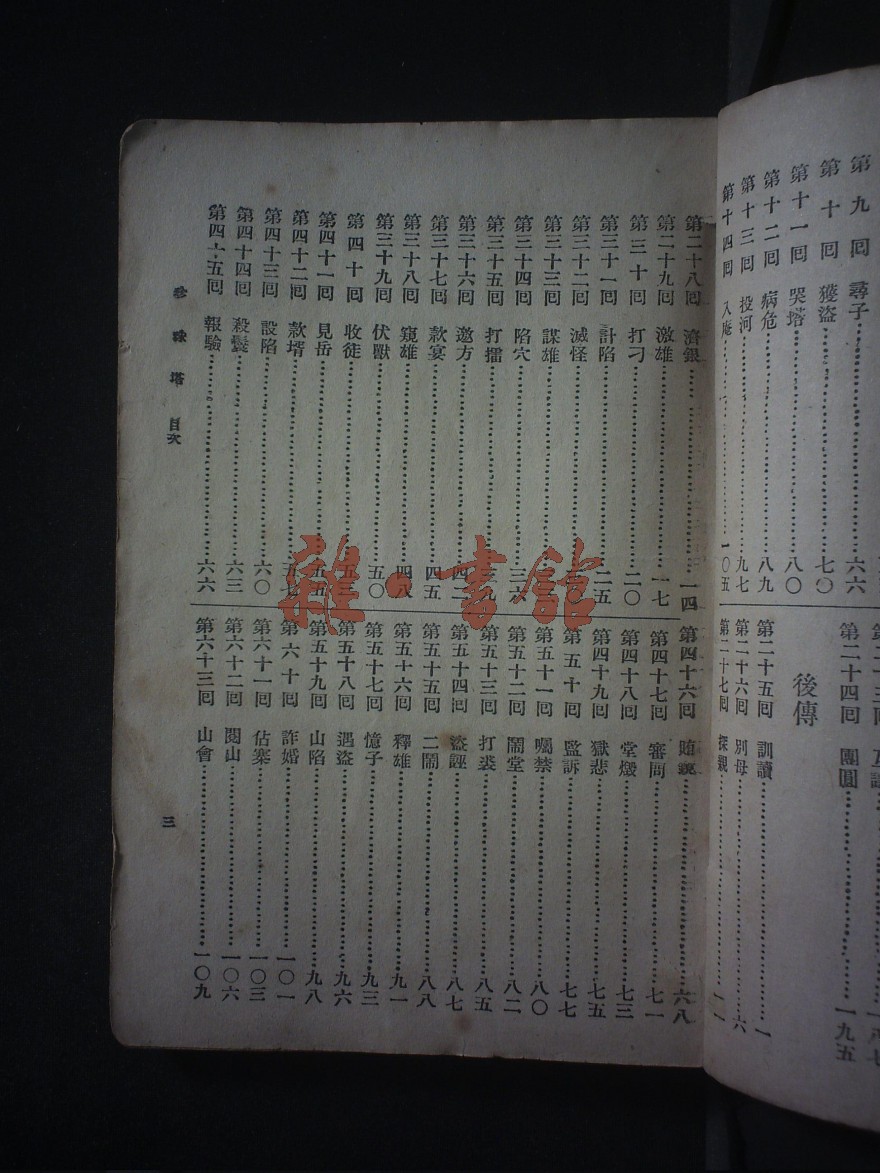 第九回 尋子 六六
第十回 獲盜 七〇
第十一回 哭塔 八〇
第十二回 病危 八九
第十三回 投河 九七
第十四回 入庵 一〇五
第二十四回 團圓 一九五
後傳
第二十五回 訓讀 一
第二十六回 別母 六
第二十七回 探親 一一
第二十八回 濟銀 一四
第二十九回 激雄 一七
第三十回 打刁 二〇
第三十一回 計陷 二五
第三十二回 滅怪
第三十三回 謀雄
第三十四回 陷穴 三六
第三十五回 打擂
第三十六回 邀方 四二
第三十七回 款宴 四五
第三十八回 窺雄 四八
第三十九回 伏獸 五〇
第四十回 收徒 五三
第四十一回 見岳 五五
第四十二回 款壻 五七
第四十三回 設陷 六〇
第四十四回 殺鬘 六三
第四十五回 報驗 六六
第四十六回 賄 六八
第四十七回 審問 七一
第四十八回 堂燬 七三
第四十九回 獄悲 七五
第五十回 監訴 七七
第五十一回 囑禁 八〇
第五十二回 鬧堂 八二
第五十三回 打裘 八五
第五十四回 盜誣 八七
第五十五回 二鬧 八八
第五十六回 釋雄 九一
第五十七回 憶子 九三
第五十八回 遇盜 九六
第五十九回 山陷 九八
第六十回 詐婚 一〇一
第六十一回 佔寨 一〇三
第六十二回 閱山 一〇六
第六十三回 山會 一〇九
珍珠塔 目次
三
雜·書館